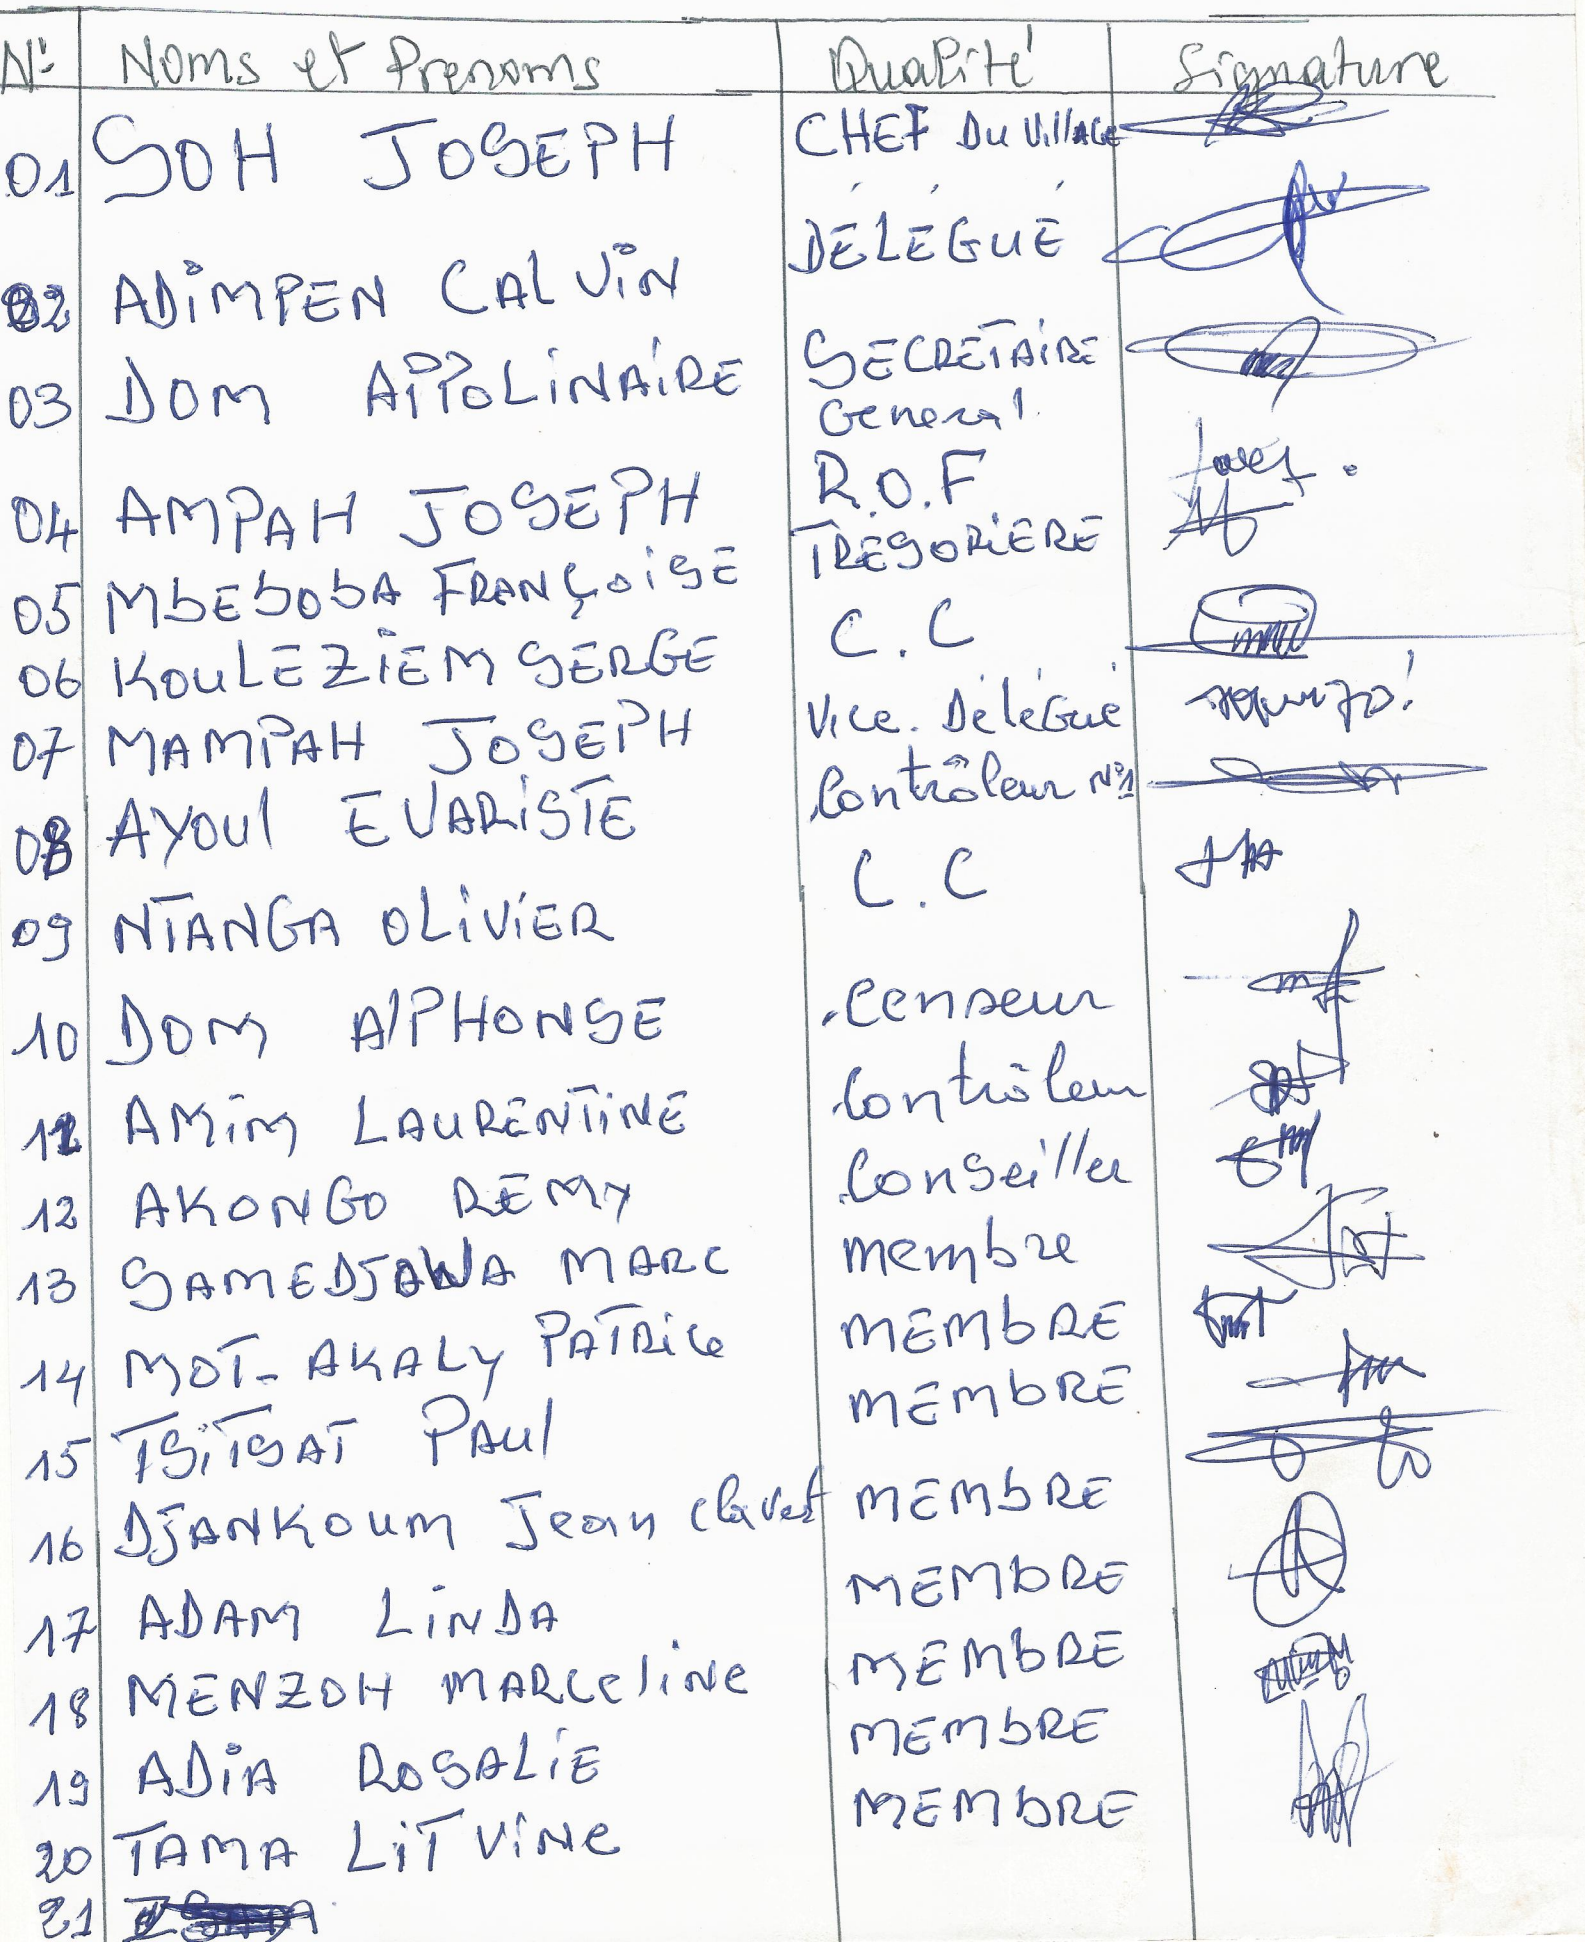 N° Noms et Prenoms Qualité Signature
01 SOH JOSEPH CHEF Du VillAGE
02 ADiMPEN CALViN DÉLÉGUÉ
03 DOM APPOLiNAiRE SECRETAiRE
General
04 AMPAH JOSEPH R.O.F
05 MbEbobA FRANÇOiSE TRESORiERE
06 KOULEZIEM SERGE C.C
07 MAMPAH JOSEPH Vice. Délégué
08 AYOUl EVARiSTE Contrôleur N°1
09 NTANGA OLiViER C.C
10 DOM AlPHONSE Censeur
11 AMiM LAURENTiNE Contrôleur
12 AKONGO REMY Conseiller
13 SAMEDJAWA MARC membre
14 MOT-AKALY PATRice MEMbRE
15 TSiTSAT PAUl MEMbRE
16 DJANKOUM Jean clavet MEMbRE
17 ADAM LiNDA MEMbRE
18 MENZOH MARCeliNe MEMbRE
19 ADiA ROSALiE MEMbRE
20 TAMA LiTViNe MEMbRE
21